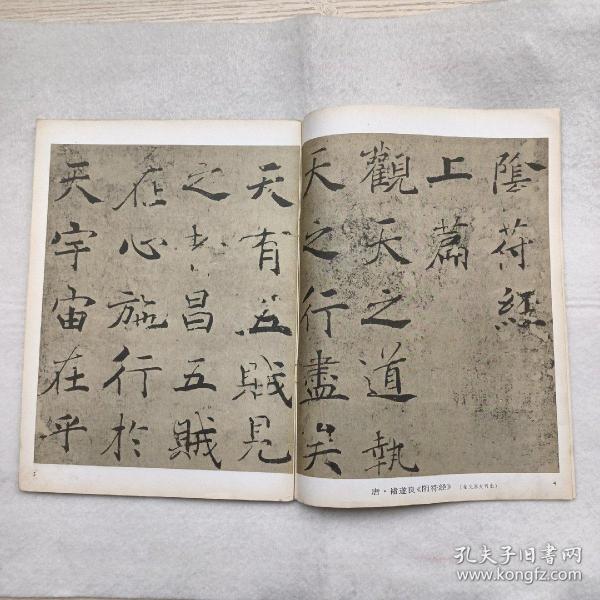 陰符經
上篇
觀天之道執
天之行盡矣
天有五賊見
之者昌五賊
在心施行於
天宇宙在乎
唐·褚遂良《阴符经》
4
5
孔夫子旧书网
www.kongfz.com